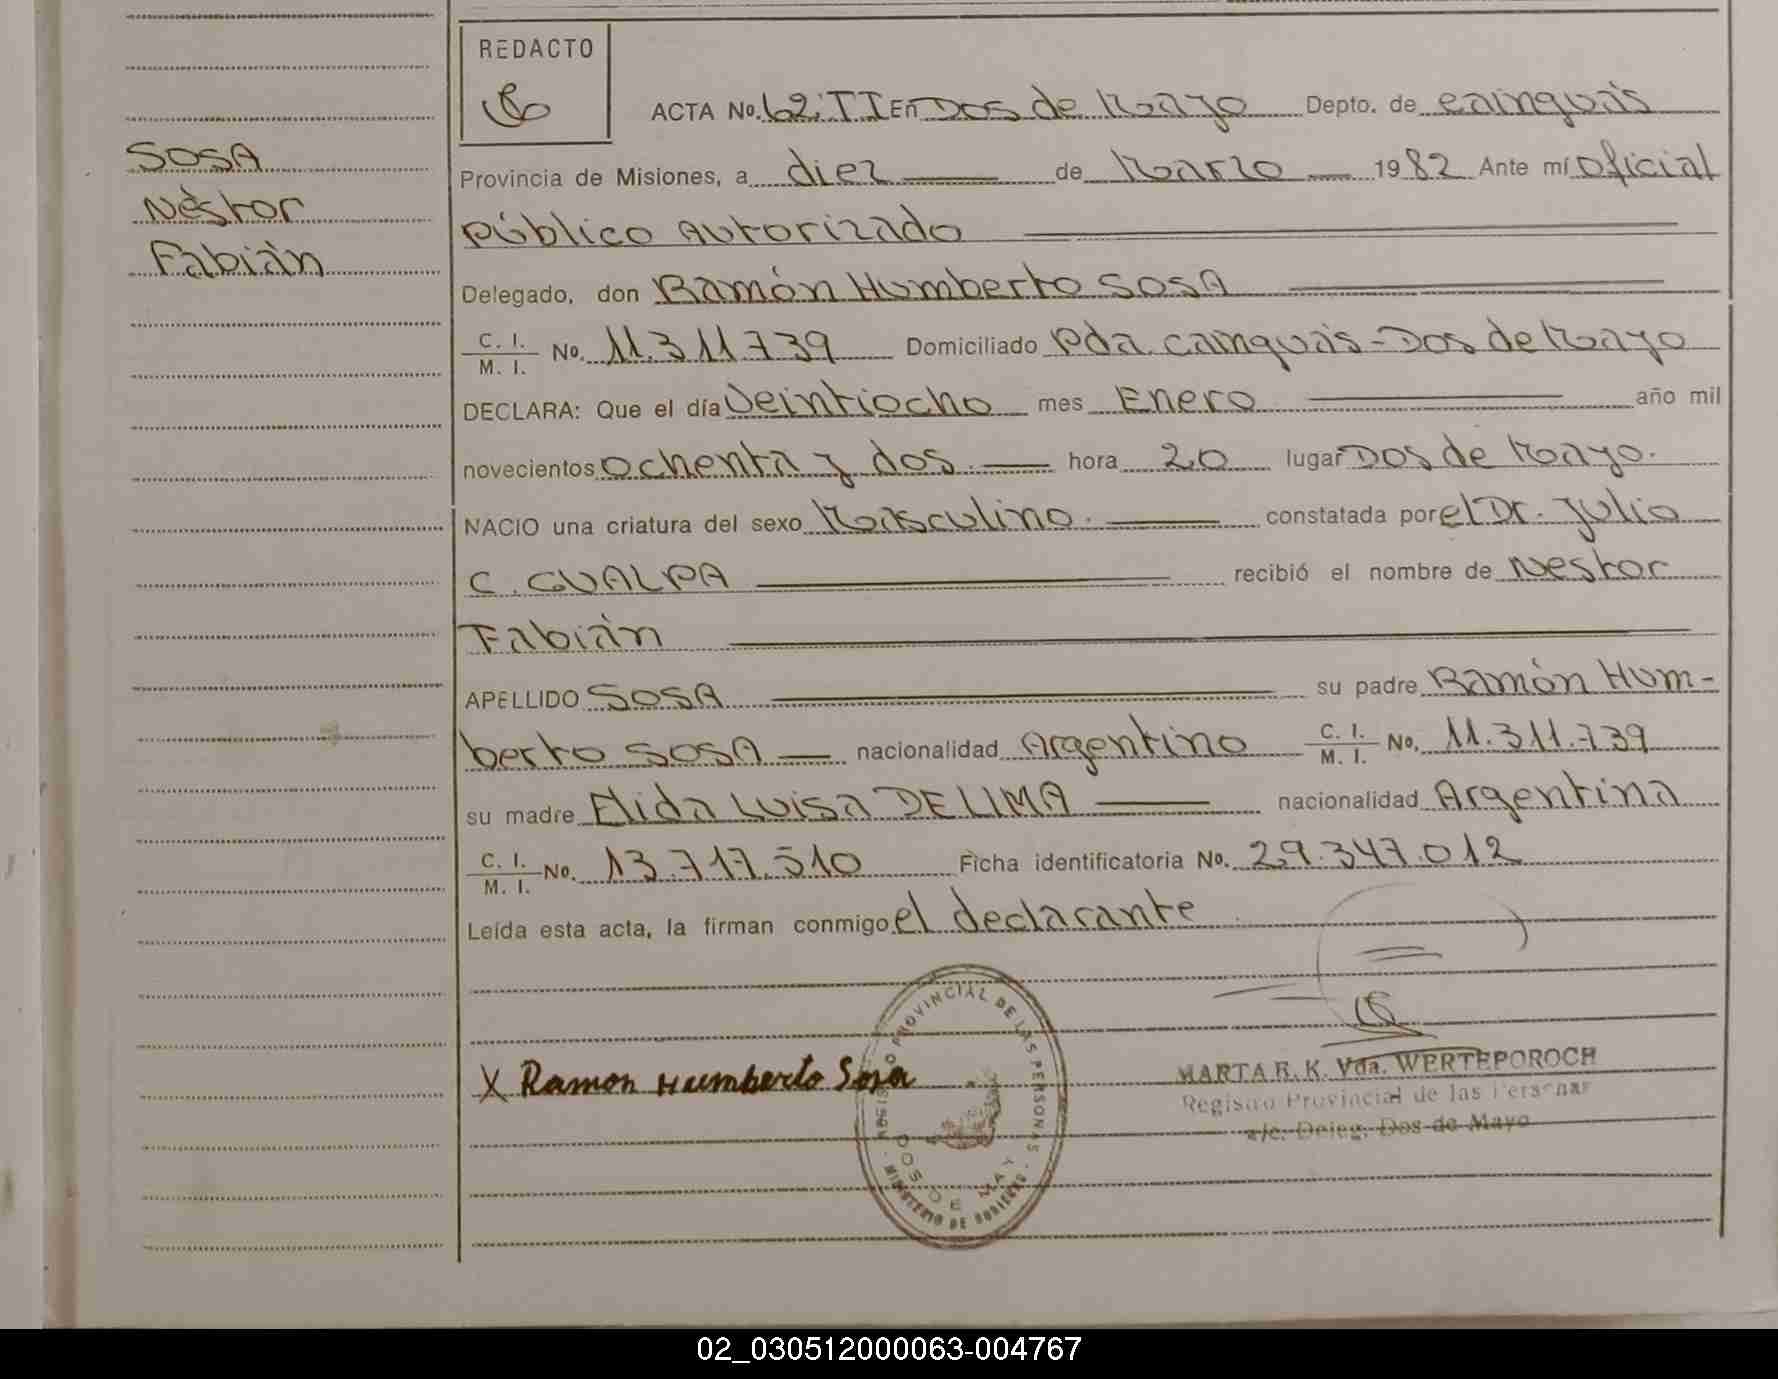 REDACTO
SOSA
Néstor
Fabián
ACTA No. 62; TI En Dos de Mayo Depto. de Cainguás
Provincia de Misiones, a diez de Marzo 1982 Ante mí Oficial
Público Autorizado
Delegado, don Ramón Humberto SOSA
C. I. / M. I. No. 11.311.739 Domiciliado Pda. Cainguás-Dos de Mayo
DECLARA: Que el día Veintiocho mes Enero año mil
novecientos ochenta y dos. hora 20 lugar Dos de Mayo.
NACIO una criatura del sexo Masculino. constatada por el Dr. Julio
C. GUALPA recibió el nombre de Nestor
Fabián
APELLIDO SOSA su padre Ramón Hum-
berto SOSA nacionalidad Argentino C. I. / M. I. No. 11.311.739
su madre Elida Luisa DE LIMA nacionalidad Argentina
C. I. / M. I. No. 13.717.510 Ficha identificatoria No. 29.347.012
Leída esta acta, la firman conmigo el declarante
X Ramon Humberto Sosa
REGISTRO PROVINCIAL DE LAS PERSONAS
MINISTERIO DE GOBIERNO
DOS DE MAYO
MARTA R. K. Vda. WERTEPOROCH
Registro Provincial de las Personas
a/c. Deleg. Dos de Mayo
02_030512000063-004767